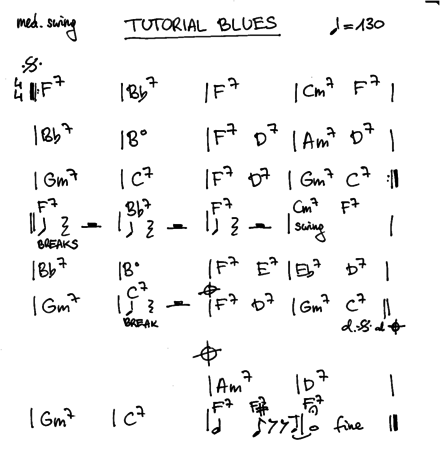 med. swing TUTORIAL BLUES ♩=130
4/4 F7 | Bb7 | F7 | Cm7 F7 |
| Bb7 | B° | F7 D7 | Am7 D7 |
| Gm7 | C7 | F7 D7 | Gm7 C7 :||
F7 Bb7 F7 Cm7 F7
swing
BREAKS
| Bb7 | B° | F7 E7 | Eb7 D7 |
| Gm7 | C7 | F7 D7 | Gm7 C7 ||
BREAK d.S. al
| Am7 | D7 |
| Gm7 | C7 | F7 F# F7 fine